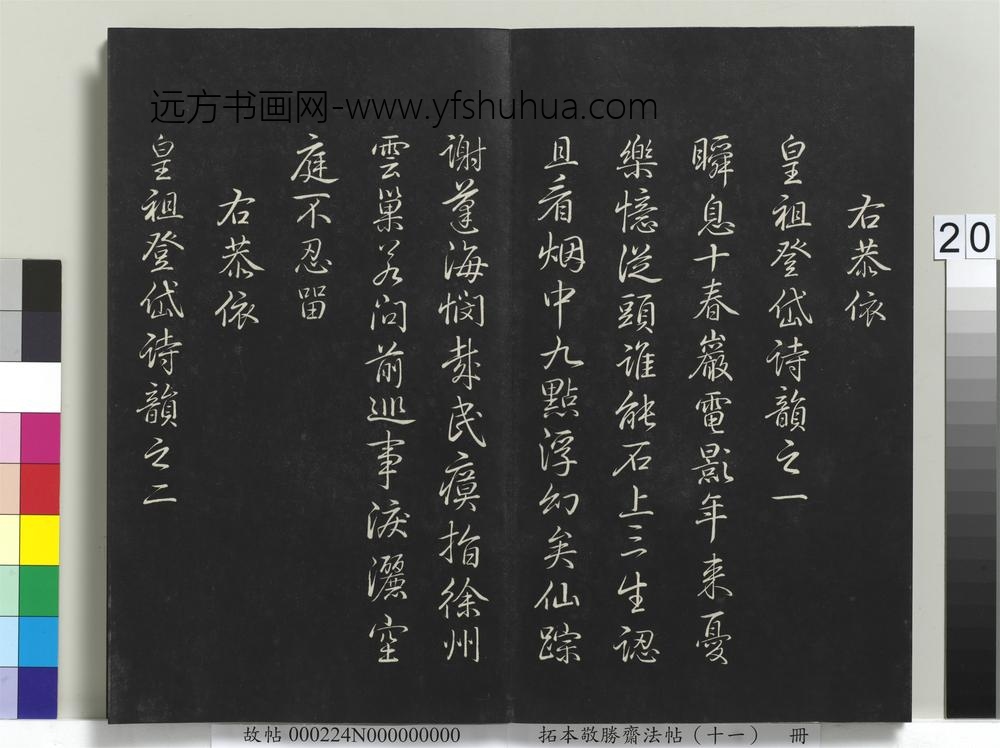 远方书画网-www.yfshuhua.com
右恭依
皇祖登岱詩韻之一
瞬息十春巖電影年来憂
樂憶從頭誰能石上三生認
且看烟中九點浮幻矣仙踪
謝蓬海憫哉民瘼指徐州
雲巢若问前巡事淚灑空
庭不忍留
右恭依
皇祖登岱詩韻之二
20
故帖 000224N000000000 拓本敬勝齋法帖（十一） 冊